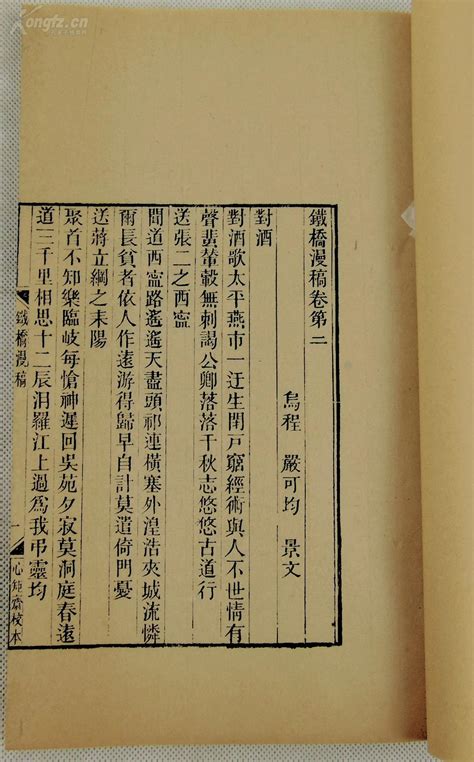 鐵橋漫稿卷第二
烏程 嚴可均 景文
對酒
對酒歌太平燕市一迂生閉戸窮經術與人不世情有
聲蜚輦轂無刺謁公卿落落千秋志悠悠古道行
送張二之西寧
聞道西寧路遙遙天盡頭祁連橫塞外湟浩夾城流憐
爾長貧者依人作遠游得歸早自計莫遣倚門憂
送蔣立綱之耒陽
聚首不知樂臨岐每愴神遲回吳苑夕寂莫洞庭春遠
道三千里相思十二辰汨羅江上過為我弔靈均
鐵橋漫稿
一
心矩齋校本